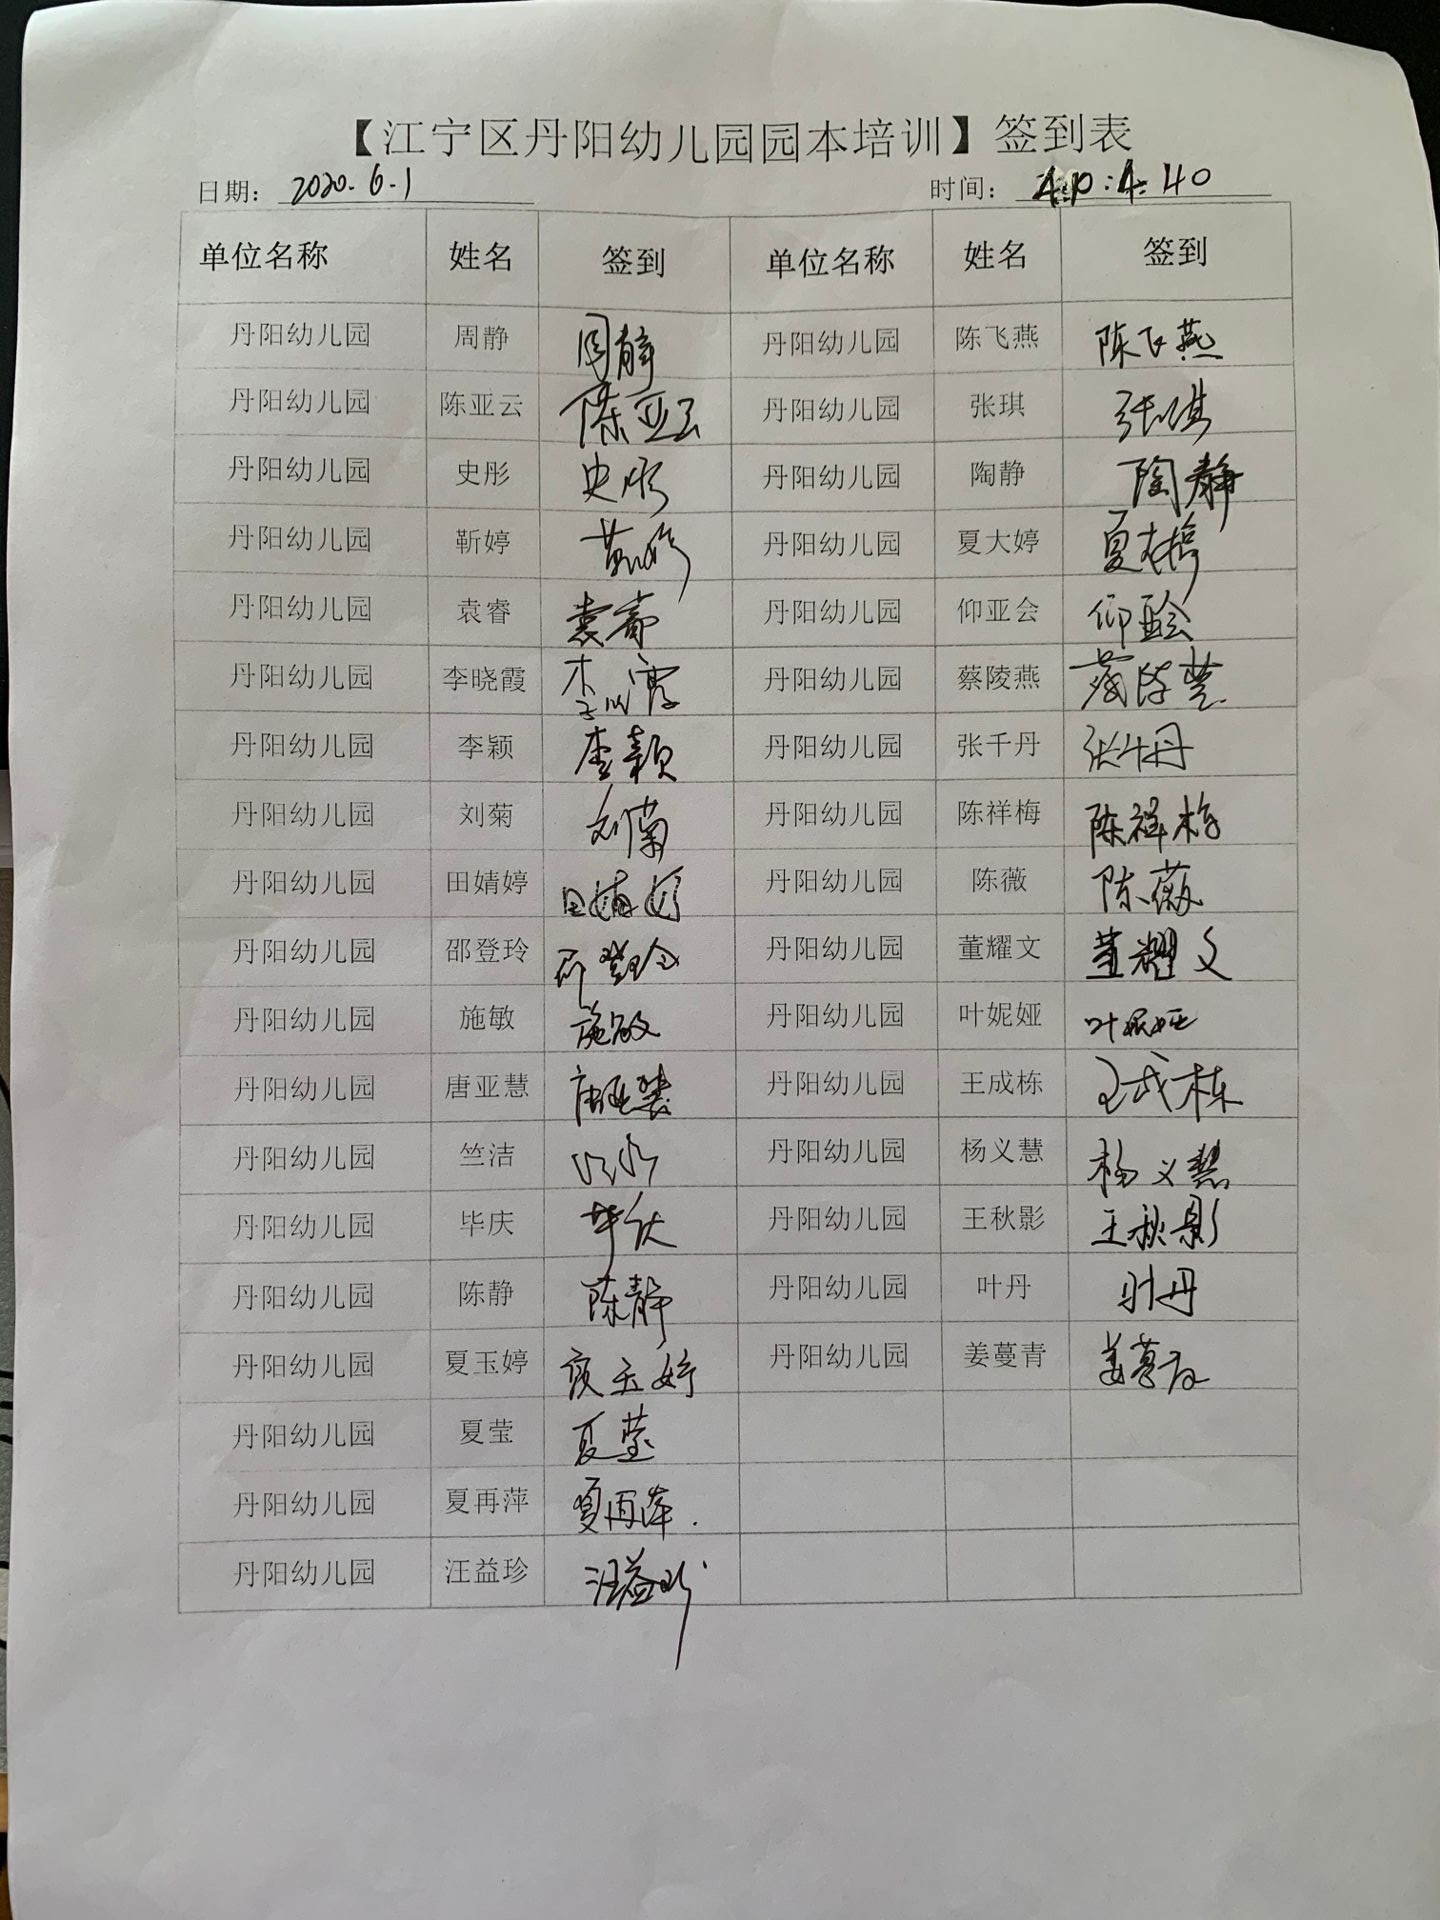 【江宁区丹阳幼儿园园本培训】签到表
日期： 2020.6.1 时间： 4:40
单位名称 姓名 签到 单位名称 姓名 签到
丹阳幼儿园 周静 周静 丹阳幼儿园 陈飞燕 陈飞燕
丹阳幼儿园 陈亚云 陈亚云 丹阳幼儿园 张琪 张琪
丹阳幼儿园 史彤 史彤 丹阳幼儿园 陶静 陶静
丹阳幼儿园 靳婷 靳婷 丹阳幼儿园 夏大婷 夏大婷
丹阳幼儿园 袁睿 袁睿 丹阳幼儿园 仰亚会 仰亚会
丹阳幼儿园 李晓霞 李晓霞 丹阳幼儿园 蔡陵燕 蔡陵燕
丹阳幼儿园 李颖 李颖 丹阳幼儿园 张千丹 张千丹
丹阳幼儿园 刘菊 刘菊 丹阳幼儿园 陈祥梅 陈祥梅
丹阳幼儿园 田婧婷 田婧婷 丹阳幼儿园 陈薇 陈薇
丹阳幼儿园 邵登玲 邵登玲 丹阳幼儿园 董耀文 董耀文
丹阳幼儿园 施敏 施敏 丹阳幼儿园 叶妮娅 叶妮娅
丹阳幼儿园 唐亚慧 唐亚慧 丹阳幼儿园 王成栋 王成栋
丹阳幼儿园 竺洁 丹阳幼儿园 杨义慧 杨义慧
丹阳幼儿园 毕庆 毕庆 丹阳幼儿园 王秋影 王秋影
丹阳幼儿园 陈静 陈静 丹阳幼儿园 叶丹 叶丹
丹阳幼儿园 夏玉婷 夏玉婷 丹阳幼儿园 姜蔓青 姜蔓青
丹阳幼儿园 夏莹 夏莹
丹阳幼儿园 夏再萍 夏再萍
丹阳幼儿园 汪益珍 汪益珍